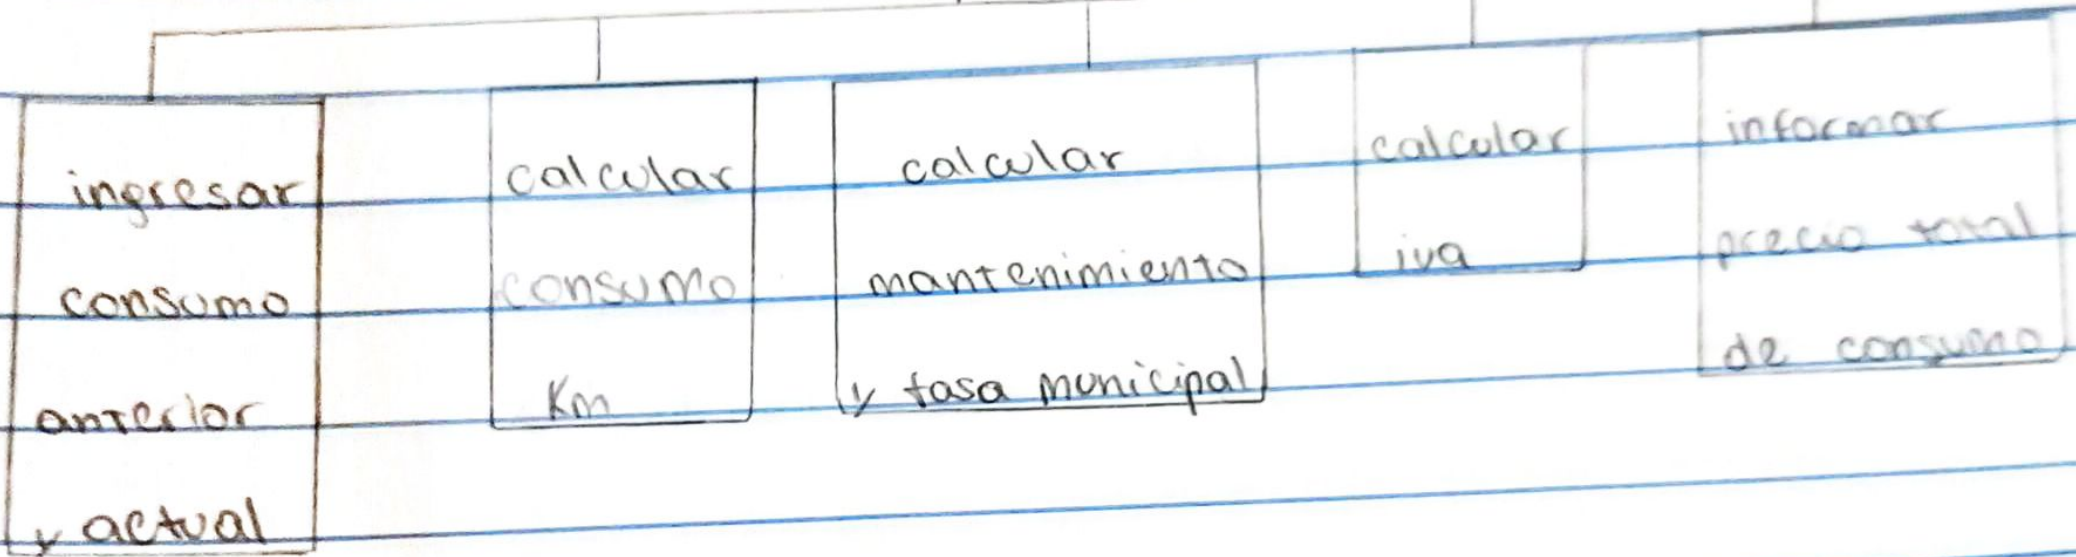 ingresar
consumo
anterior
y actual
calcular
consumo
Km
calcular
mantenimiento
y tasa municipal
calcular
iva
informar
precio total
de consumo